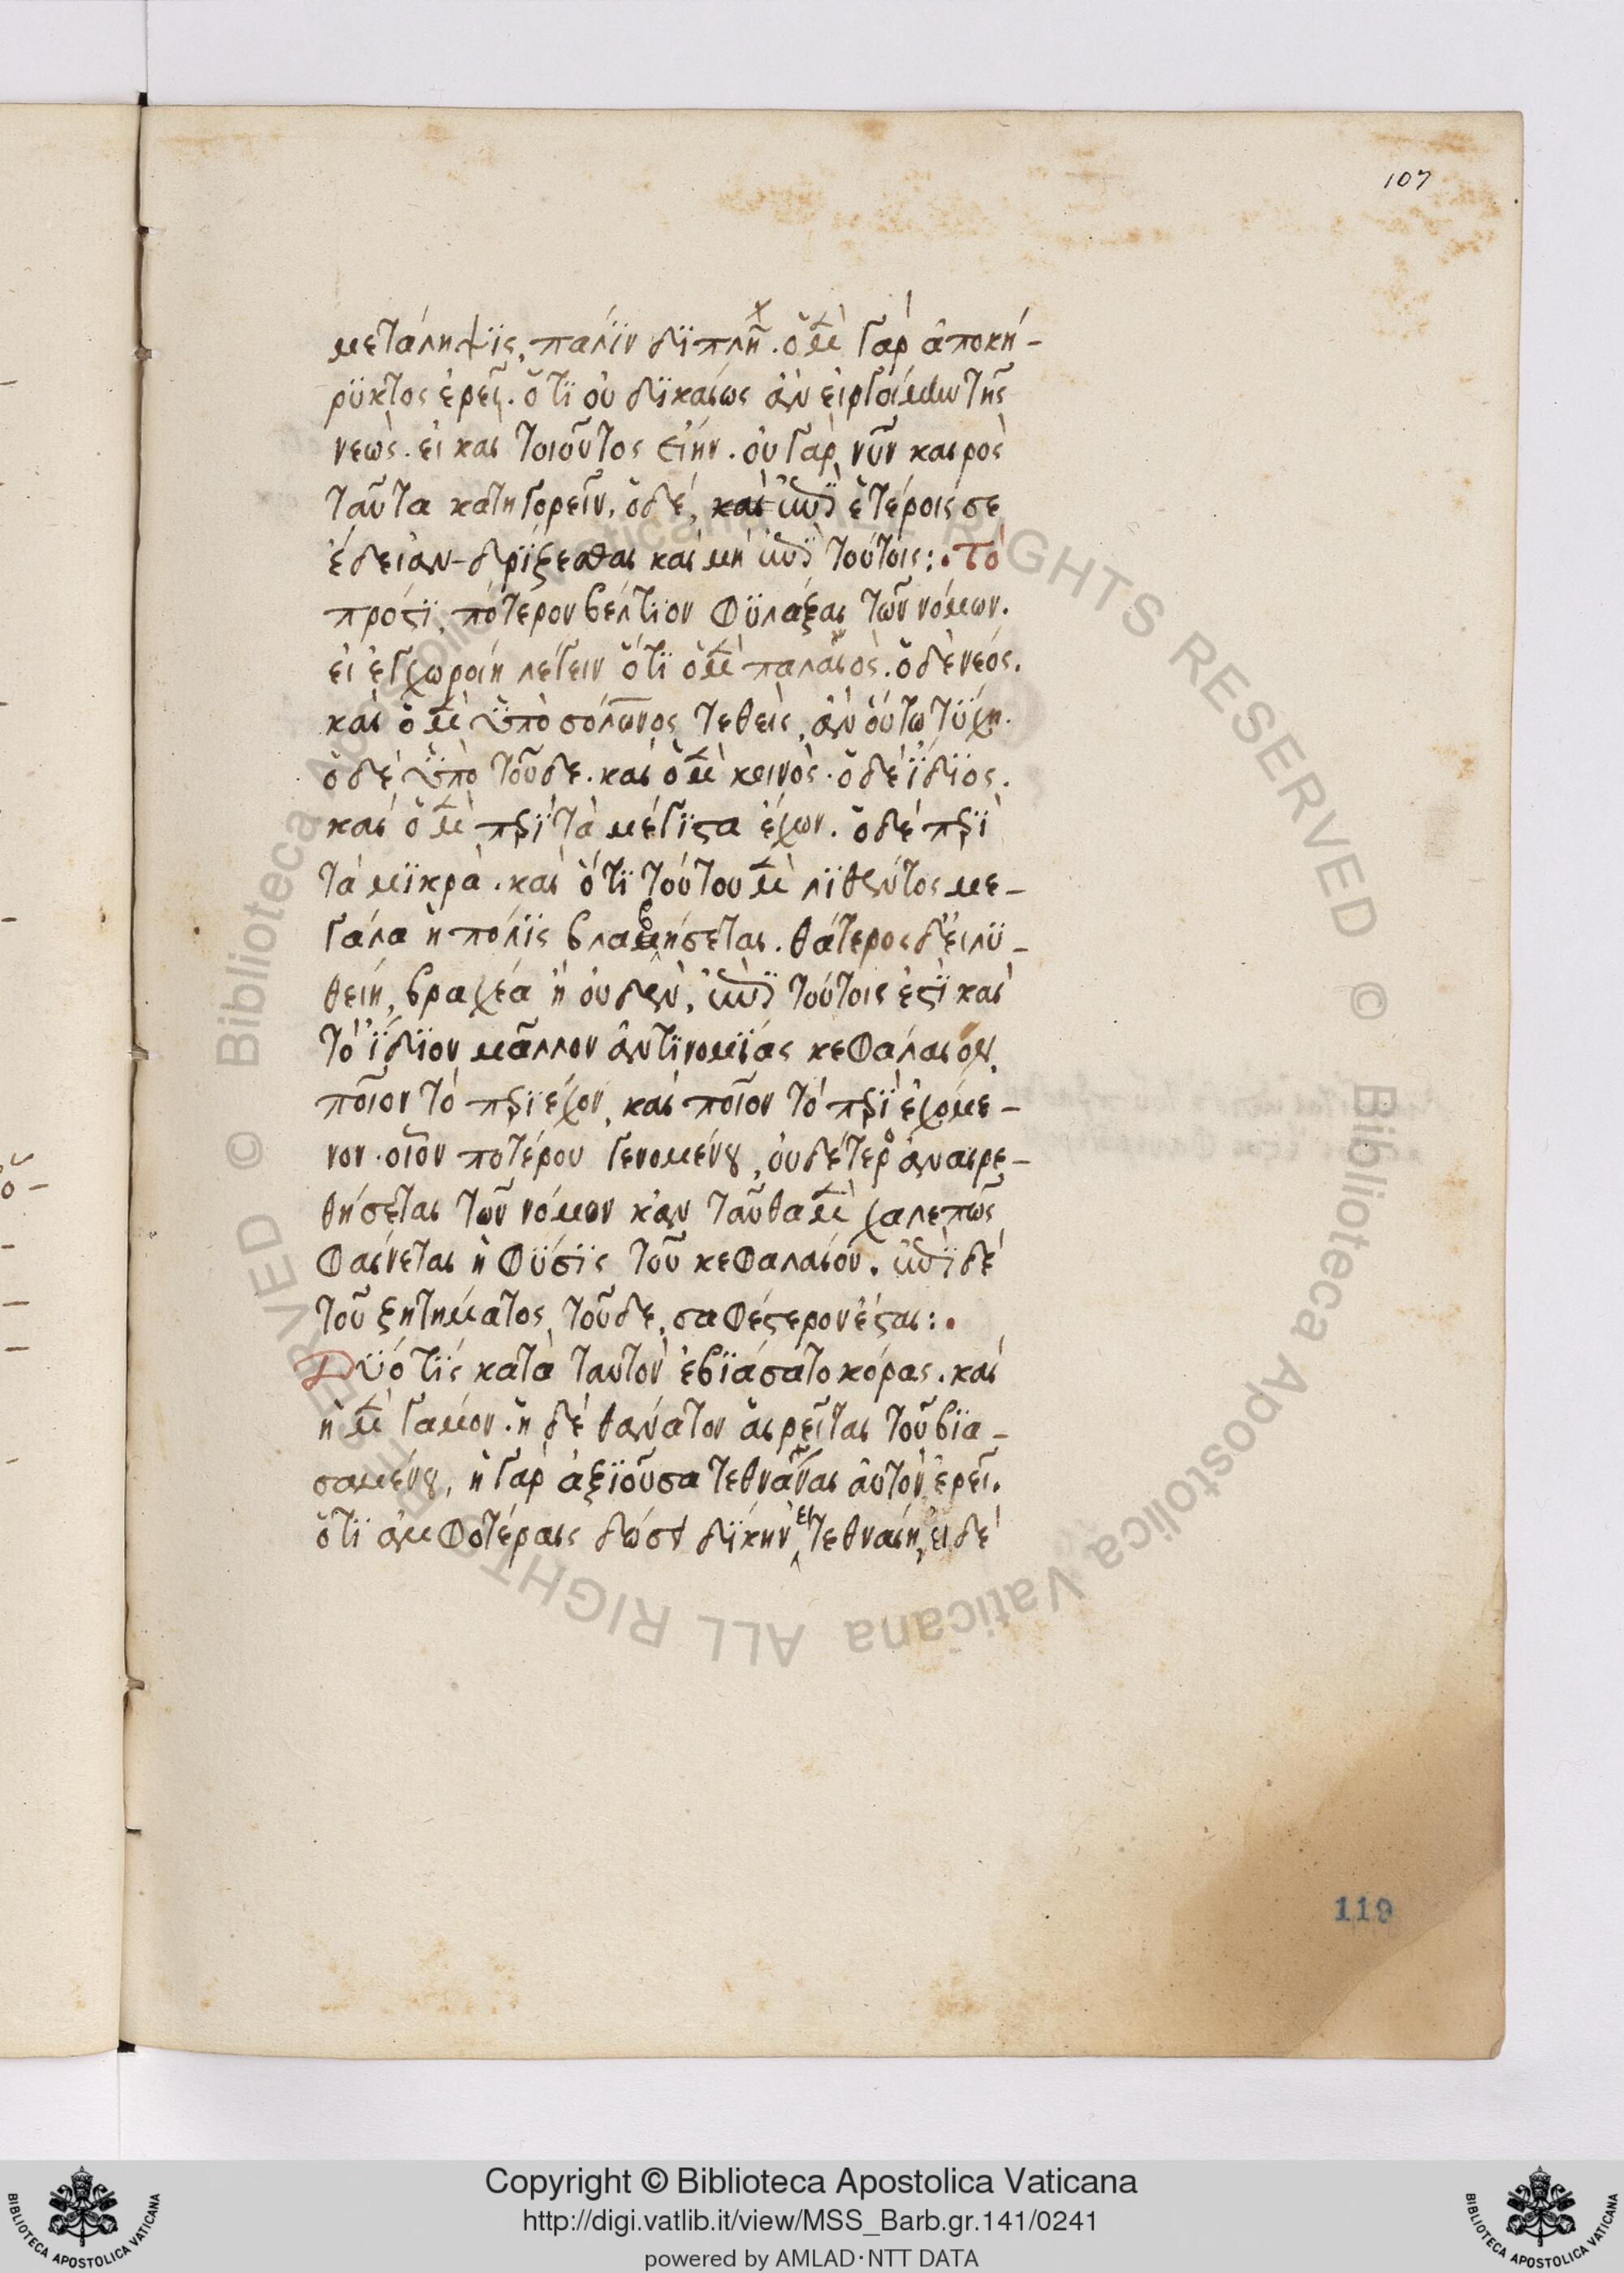 107
μετάληψϊς, παλίϊν δϊπλῆ. ὁ μὲν γὰρ ἀποκή-
ρϋκτος ἐρεῖ. ὅτϊ οὐ δϊκαίως ἂν εἰργοίμην τῆς
νεώς. εἰ καὶ τοιοῦτος εἴην. οὐ γὰρ νῦν καιρὸς
ταῦτα κατηγορεῖν. ὁ δέ, καὶ ἐπὶ ἑτέροις σε
ἔδει ἀνδρΐζεσθαι καὶ μὴ ἐπὶ τούτοις:. Τὸ
πρόςϊ, πότερον βέλτϊον φϋλάξαι τῶν νόμων.
εἰ ἐγχωροίη λέγειν ὅτϊ ὁ μὲν παλαιὸς. ὁ δὲ νεός.
καὶ ὁ μὲν ὑπὸ σόλωνος τεθεὶς, ἂν οὕτω τύχη.
ὁ δὲ ὑπὸ τοῦδε. καὶ ὁ μὲν κοινὸς. ὁ δὲ ἴδϊος.
καὶ ὁ μὲν περὶ τὰ μέγϊςα ἔχων. ὁ δὲ περὶ
τὰ μϊκρὰ. καὶ ὅτϊ τούτου μὲν λϊθέντος με-
γάλα ἡ πόλϊς βλαβήσεται. θάτερος δ' εἰ λϋ-
θείη, βραχέα ἢ οὐδὲν, ἐπὶ τούτοις ἐςὶ καὶ
τὸ ἴδϊον μᾶλλον ἀντϊνομϊας κεφάλαιον,
ποῖον τὸ περϊέχον, καὶ ποῖον τὸ περϊεχόμε-
νον. οἷον ποτέρου γενομένου, οὐδέτερος ἀναιρε-
θήσεται τῶν νόμων κἀν ταῦθα μὲν χαλεπῶς
φαίνεται ἡ φύσϊς τοῦ κεφαλαίου. ἐπὶ δὲ
τοῦ ζητήματος τοῦδε, σαφέςερον ἔςαι:.
Δϋό τϊς κατὰ ταυτὸν ἐβϊάσατο κόρας. καὶ
ἡ μὲν γάμον. ἡ δὲ θάνατον αἱρεῖται τοῦ βϊα-
σαμένου, ἡ γὰρ ἀξϊοῦσα τεθνᾶναι αὐτὸν ἐρεῖ.
ὅτϊ ἀμφοτέραις δώσει δϊκην εἰ τεθναίη, εἰ δὲ
119
Copyright © Biblioteca Apostolica Vaticana
http://digi.vatlib.it/view/MSS_Barb.gr.141/0241
powered by AMLAD·NTT DATA